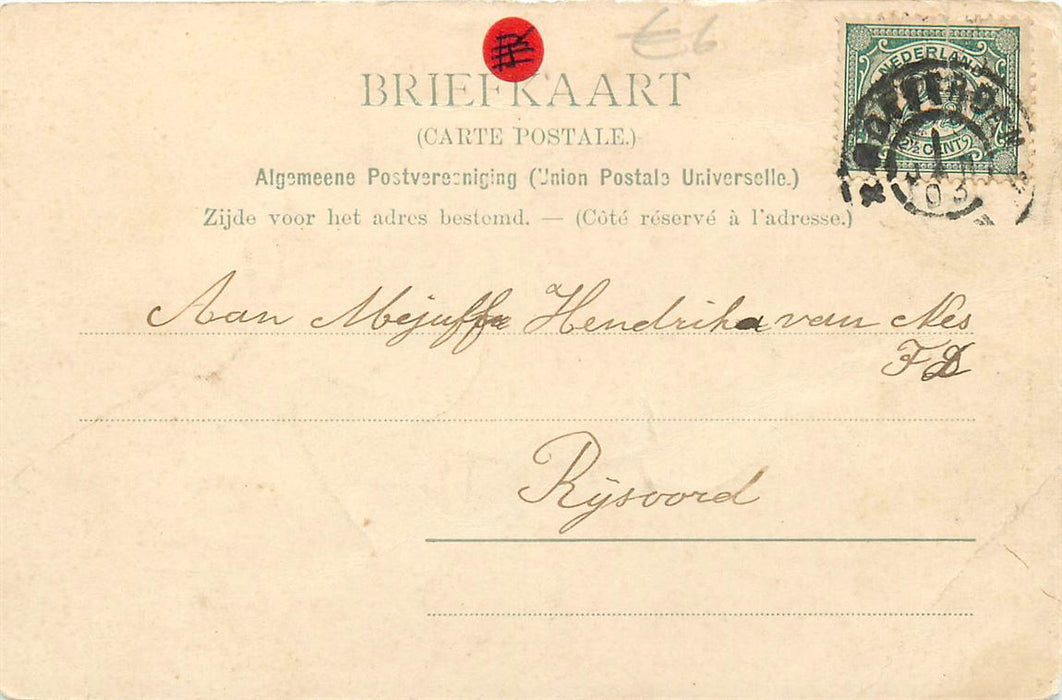 €6
BRIEFKAART
(CARTE POSTALE.)
Algemeene Postvereeniging (Union Postale Universelle.)
Zijde voor het adres bestemd. — (Côté réservé à l'adresse.)
NEDERLAND
2½ CENT
ROTTERDAM
1
03
Aan Mejuffr Hendrika van Nes
FD
Rijsoord